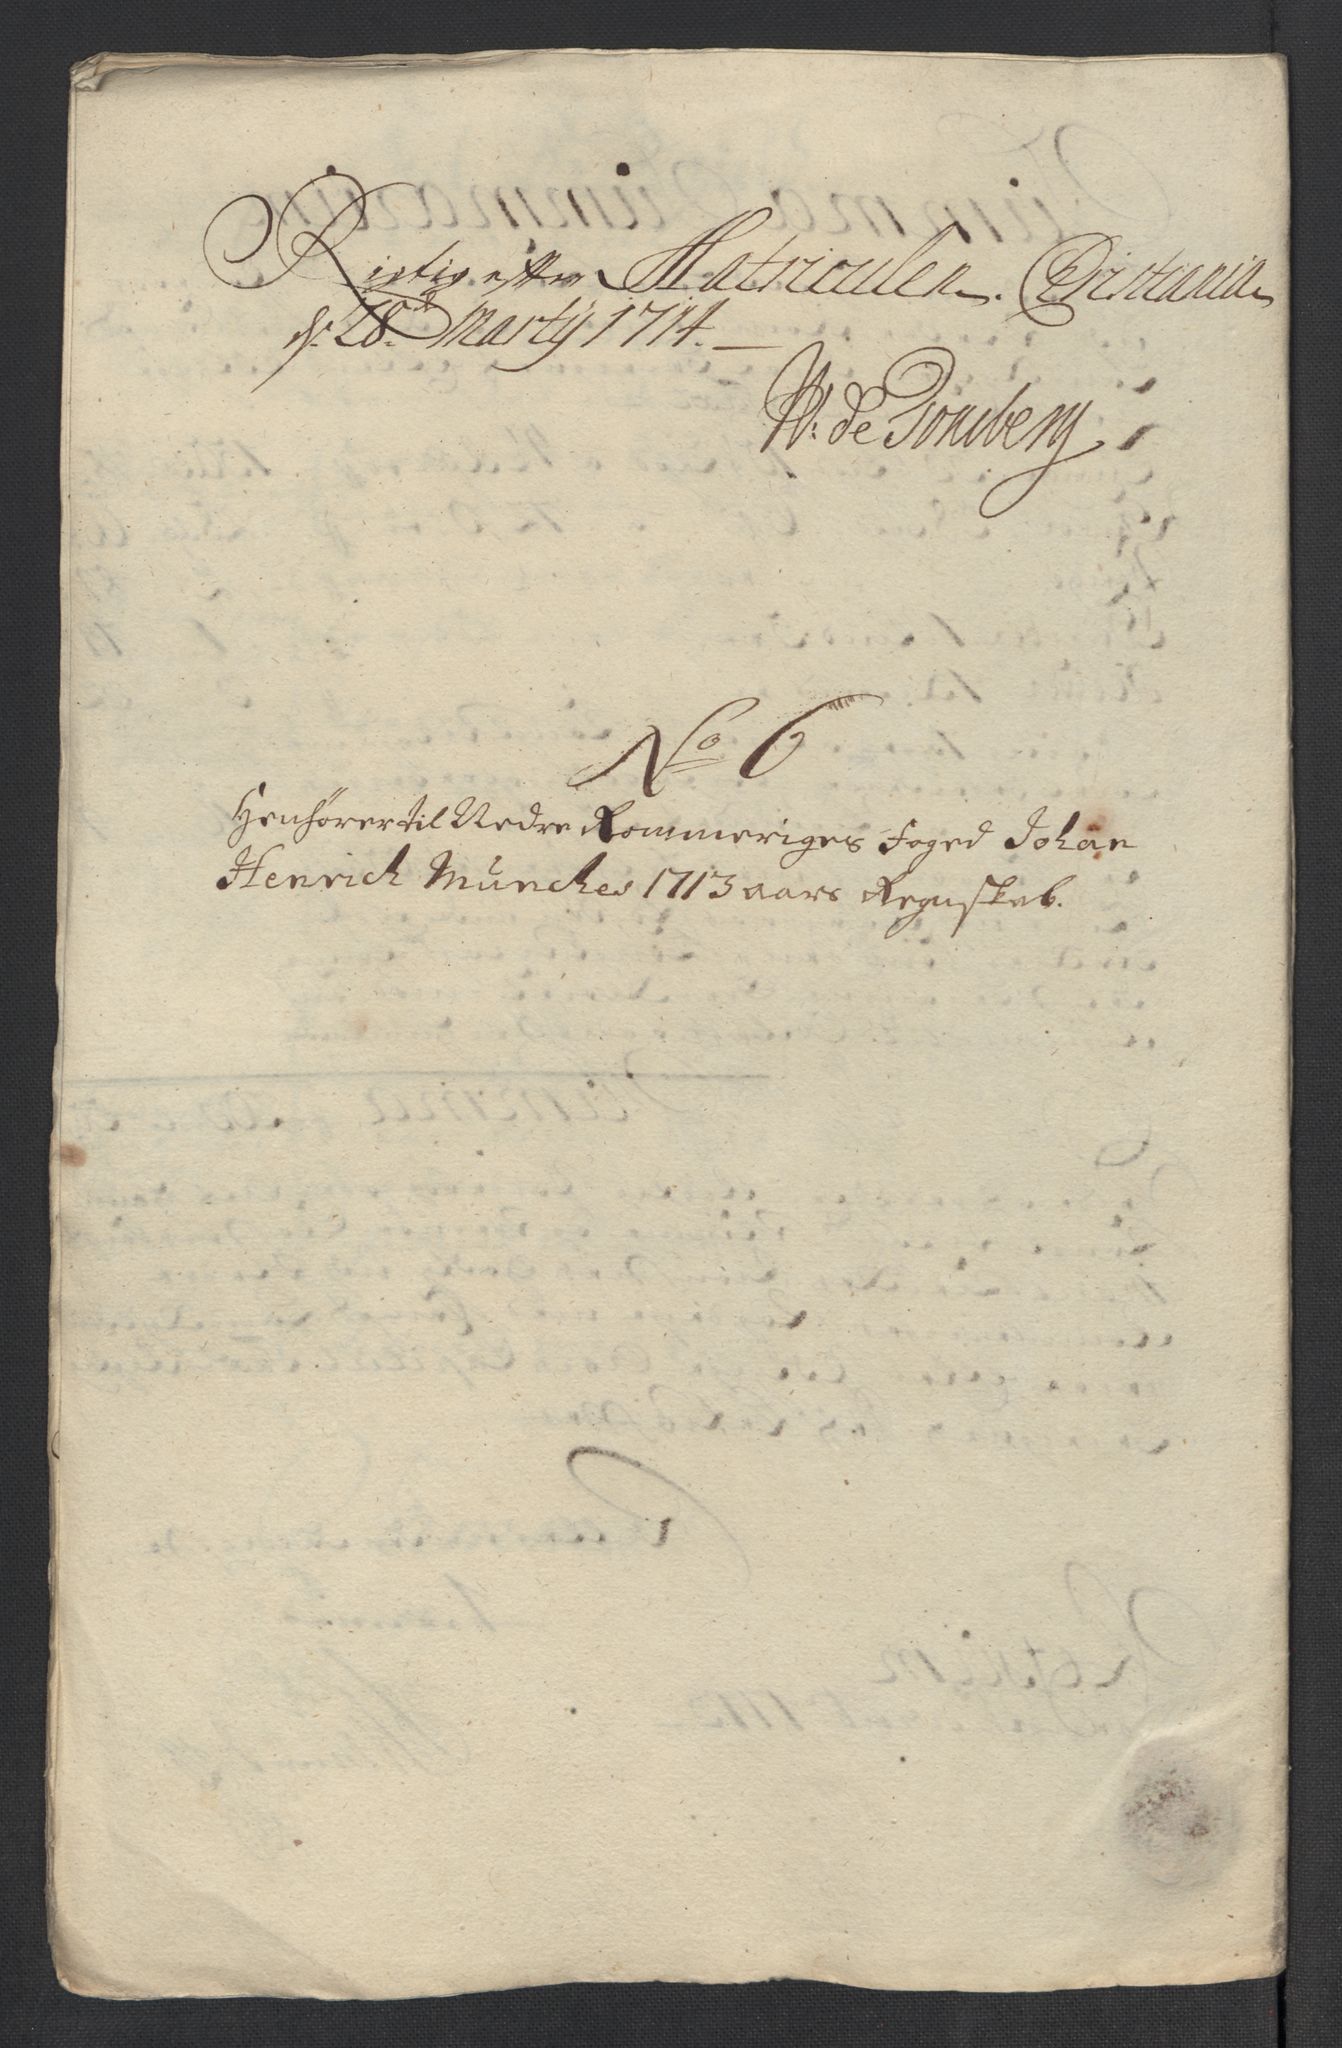 Rigtig efter Matriculen. Christiania
d: 28de Martij 1714.
W: de Tonsberg
No 6
Henhører til Nedre Rommeriges Foged Johan
Henrich Münches 1713 aars Regnskab.